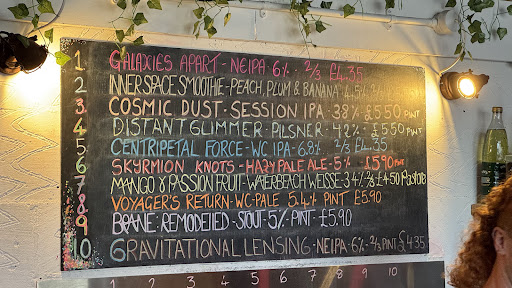 1. GALAXIES APART - NEIPA - 6% 2/3 £4.35
2 INNER SPACE SMOOTHIE - PEACH, PLUM & BANANA 4.5% 2/3
3 COSMIC DUST - SESSION IPA - 3.8% £5.50 PINT
4 DISTANT GLIMMER - PILSNER - 4.2% - £5.50 PINT
5 CENTRIPETAL FORCE - WC IPA - 6.8% 2/3 £4.35
6 SKYRMION KNOTS - HAZY PALE ALE - 5% £5.90 PINT
7 MANGO & PASSION FRUIT - WATERBEACH WEISSE - 3.4% 2/3 £4.50
8 VOYAGER'S RETURN - WC-PALE 5.4% PINT £5.90
9 BRANE: REMODELLED - STOUT - 5% - PINT - £5.90
10 GRAVITATIONAL LENSING - NEIPA - 6% - 2/3 PINT £4.35
1 2 3 4 5 6 7 8 9 10